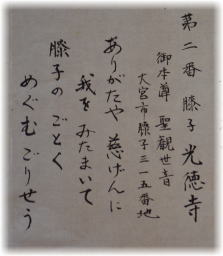 第二番 膝子 光徳寺
御本尊 聖観世音
大宮市膝子三一五番地
ありがたや 慈げんに
我を みたまいて
膝子の ごとく
めぐむ ごりせう